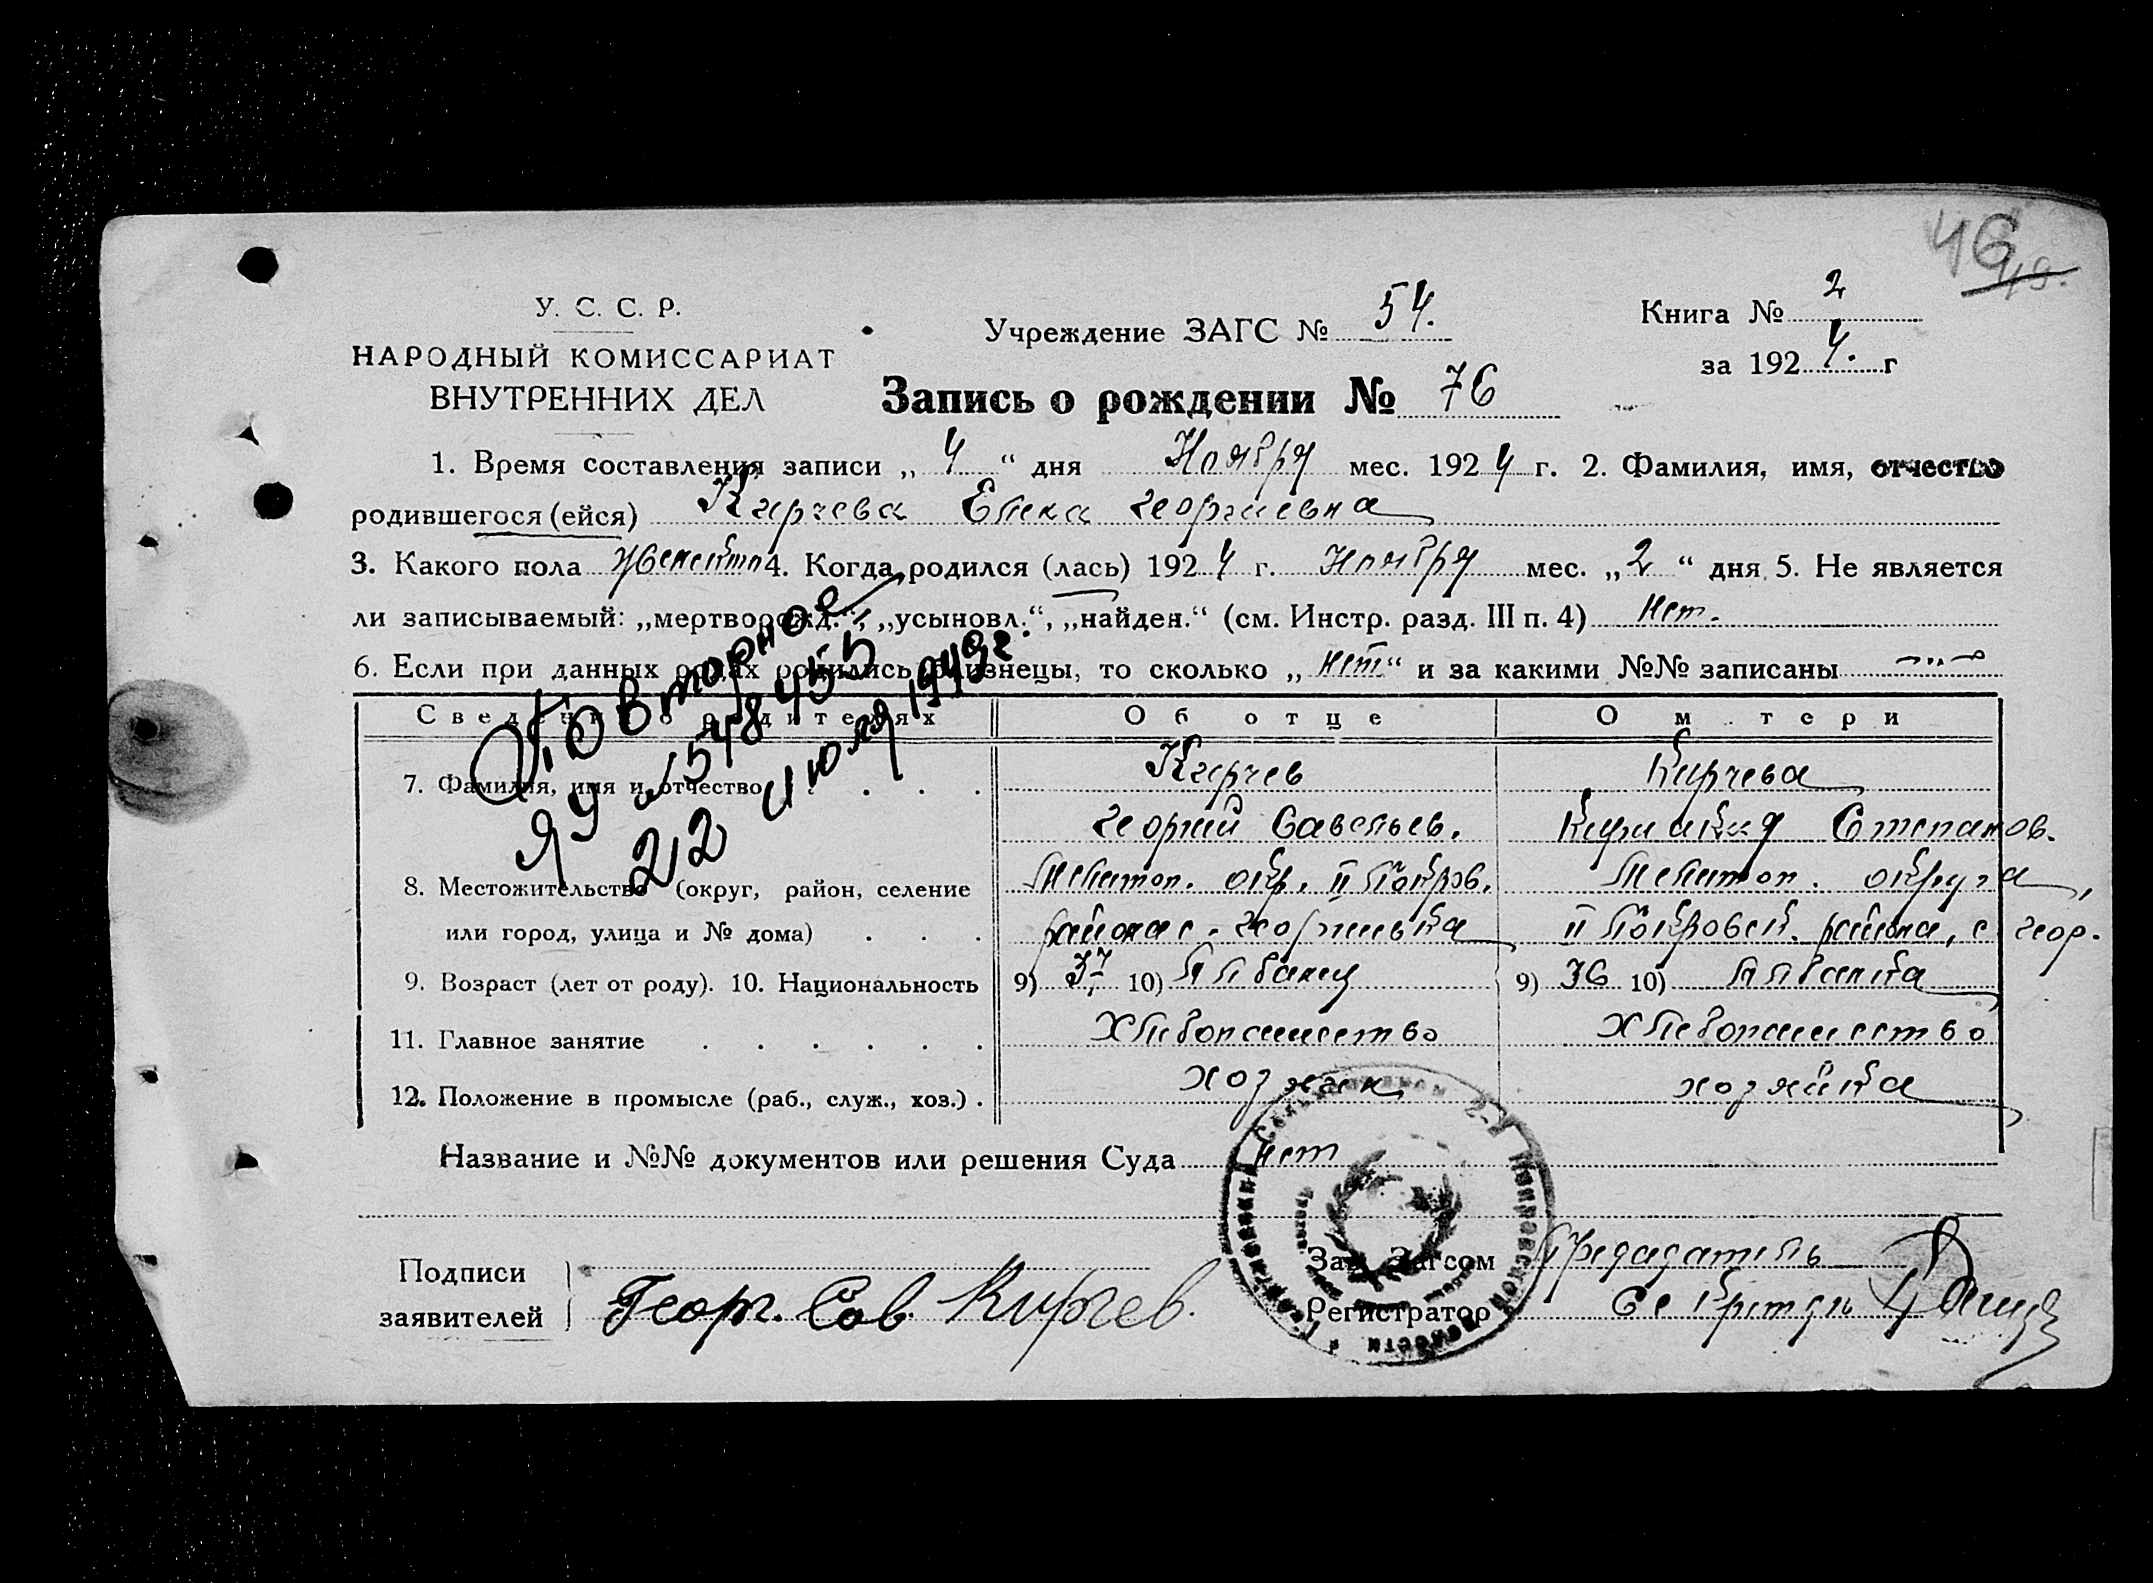 46
49.
У. С. С. Р.
НАРОДНЫЙ КОМИССАРИАТ
ВНУТРЕННИХ ДЕЛ
Учреждение ЗАГС № 54.
Книга № 2
за 1924. г
Запись о рождении № 76
1. Время составления записи „ 4 “ дня Ноября мес. 1924 г. 2. Фамилия, имя, отчество
родившегося (ейся) Кирчева Елена Георгиевна
3. Какого пола женского 4. Когда родился (лась) 1924 г. Ноября мес. „2“ дня 5. Не является
ли записываемый: „мертворожд.“, „усыновл.“, „найден.“ (см. Инстр. разд. III п. 4) нет.
6. Если при данных родах родились близнецы, то сколько „нет“ и за какими №№ записаны
Повторное
ЯУ № 548455
22 июля 1949 г.
Сведения о родителях Об отце О матери
7. Фамилия, имя и отчество Кирчев Кирчева
Георгий Савельев. Степанов.
8. Местожительство (округ, район, селение Мелитоп. окр. II Покров. Мелитоп. округа,
или город, улица и № дома) района с. Георгиевка II Покровск. района, с. Геор.
9. Возраст (лет от роду). 10. Национальность 9) 37 10) Албанец 9) 36 10) Албанка
11. Главное занятие Хлебопашество Хлебопашество
12. Положение в промысле (раб., служ., хоз.) хозяин хозяйка
Название и №№ документов или решения Суда нет
Подписи
заявителей
Георг. Сав. Кирчев.
Зав. Загсом Председатель
Регистратор Секретарь